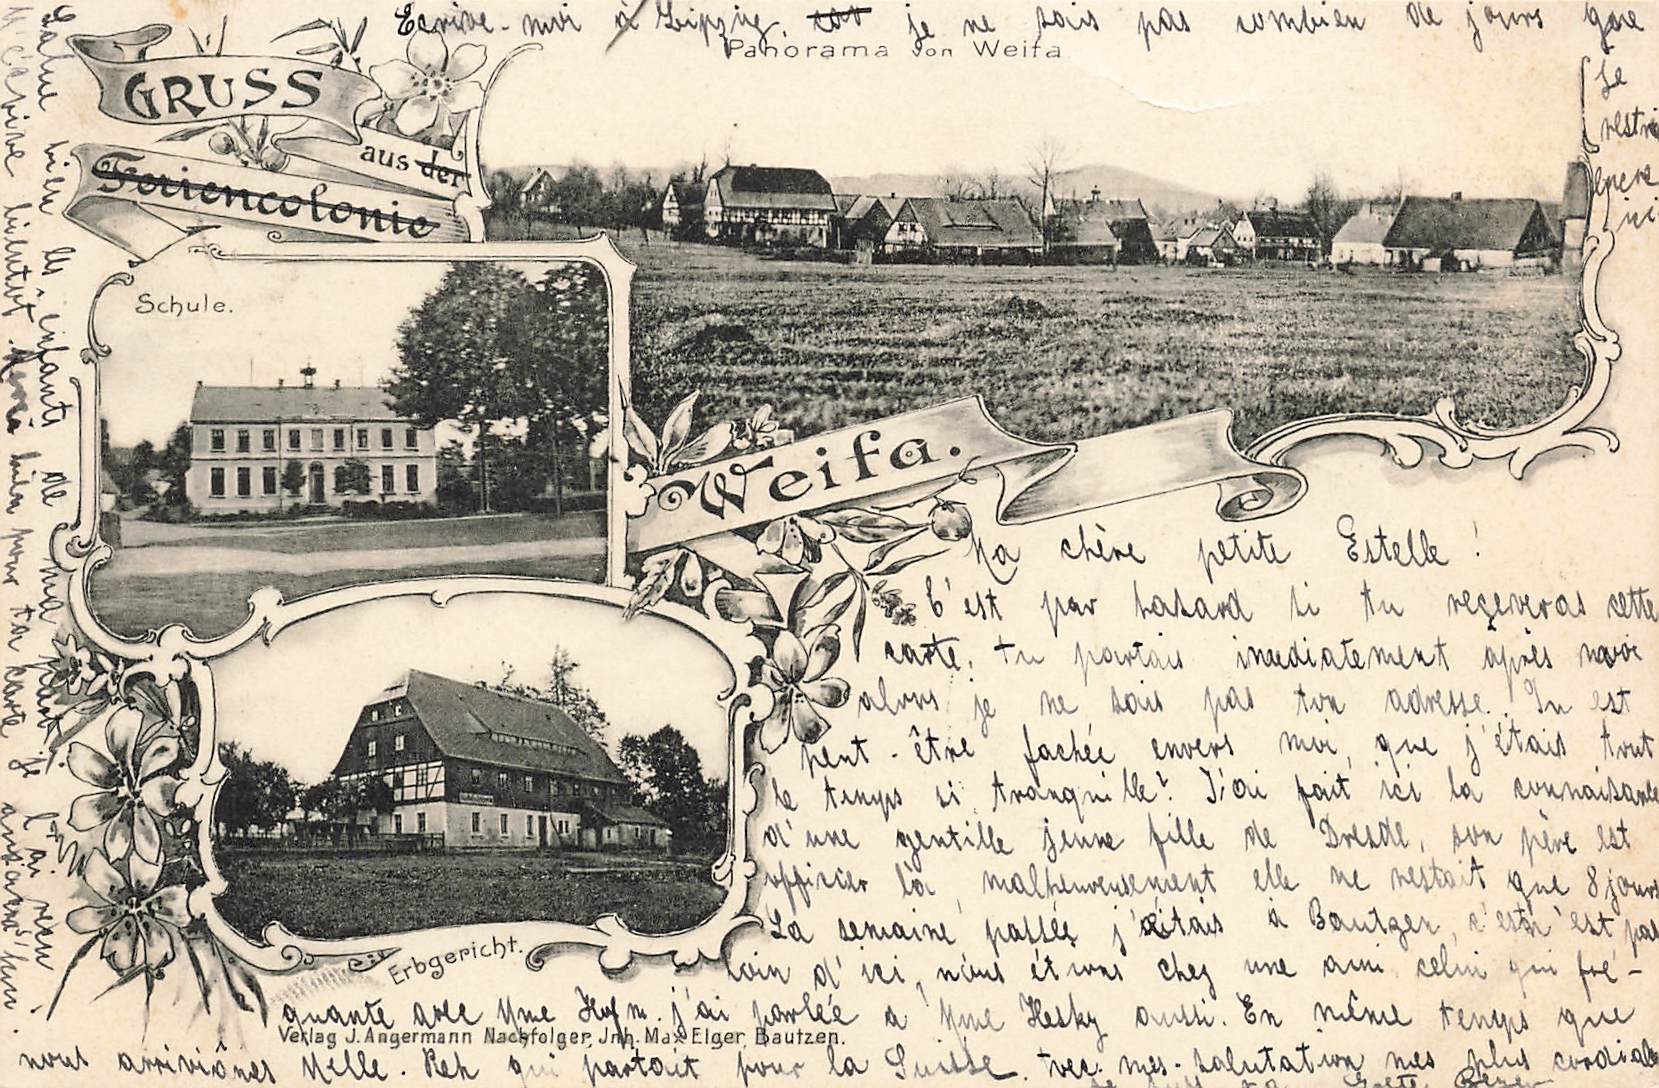 Ecrive-moi à Leipzig, je ne sais pas combien de jours que
je
ici
Panorama von Weifa
GRUSS
aus der
Feriencolonie
Schule.
Weifa.
Erbgericht.
Ma chère petite Estelle!
C'est par hasard si tu reçeveras cette
carte, tu partais imediatement après moi
alors je ne sais pas ton adresse. Tu est
peut-être fachée envers moi, que j'étais tout
le temps si tranquille? J'ai fait ici la connaisance
d'une gentille jeune fille de Dresde, son père est
officier là, malheureusement elle ne restait que 8 jours
La semaine passée j'étais à Bautzen, c'est pas
loin d'ici, nous étions chez une ami celui qui fré-
quante avec Mme Hofm. j'ai parlée a Mme Hesky aussi. En même temps que
Verlag J. Angermann Nachfolger, Jnh. Max Elger, Bautzen.
nous arriviônes Melle. Reh qui partait pour la Suisse. Avec mes salutation mes plus cordiales
Salue bien les enfants de ma part, je l'ai reçu
M'écrive bientôt. Merci bien pour ta carte je